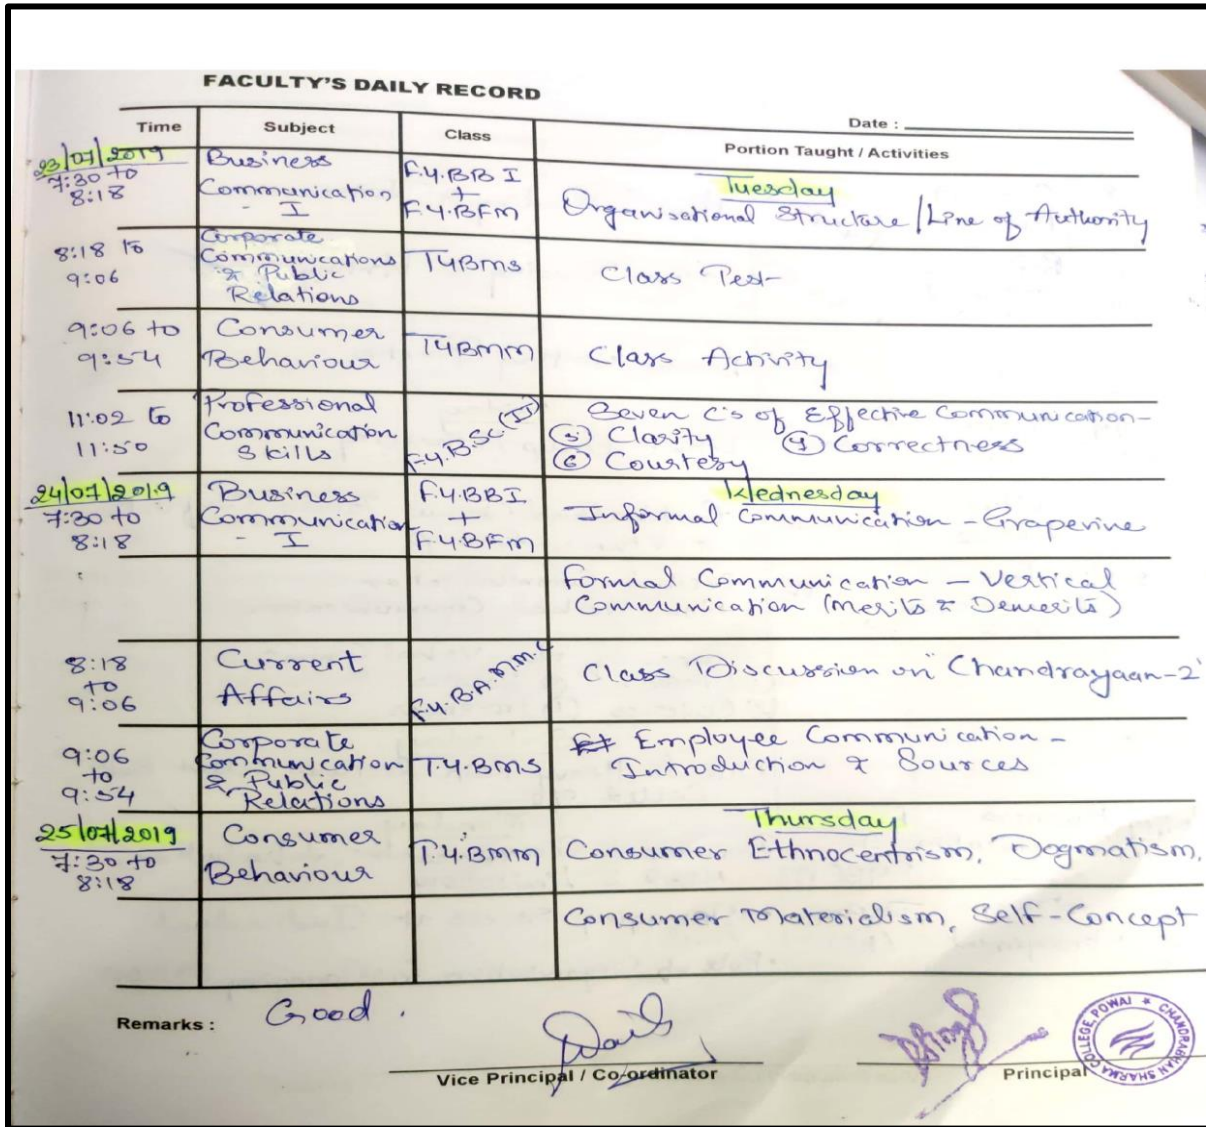 FACULTY'S DAILY RECORD
Date :
Time Subject Class Portion Taught / Activities
23/07/2019
7:30 to
8:18
Business
Communication
- I
F.Y.BBI
+
F.Y.BFM
Tuesday
Organisational Structure / Line of Authority
8:18 to
9:06
Corporate
Communications
& Public
Relations
TYBMS
Class Test
9:06 to
9:54
Consumer
Behaviour
TYBMM
Class Activity
11:02 to
11:50
Professional
Communication
Skills
F.Y.B.Sc.(IT)
Seven C's of Effective Communication-
Clarity Correctness
⑥ Courtesy
24/07/2019
7:30 to
8:18
Business
Communication
- I
F.Y.BBI
+
F.Y.BFM
Wednesday
Informal Communication - Grapevine
Formal Communication - Vertical
Communication (Merits & Demerits)
8:18
to
9:06
Current
Affairs
F.Y.B.A.M.M.C
Class Discussion on "Chandrayaan-2"
9:06
to
9:54
Corporate
Communication
& Public
Relations
T.Y.BMS
Employee Communication -
Introduction & Sources
25/07/2019
7:30 to
8:18
Consumer
Behaviour
T.Y.BMM
Thursday
Consumer Ethnocentrism, Dogmatism,
Consumer Materialism, Self-Concept
Remarks : Good .
Vice Principal / Co-ordinator
Principal
CHANDRABHAN SHARMA COLLEGE, POWAI